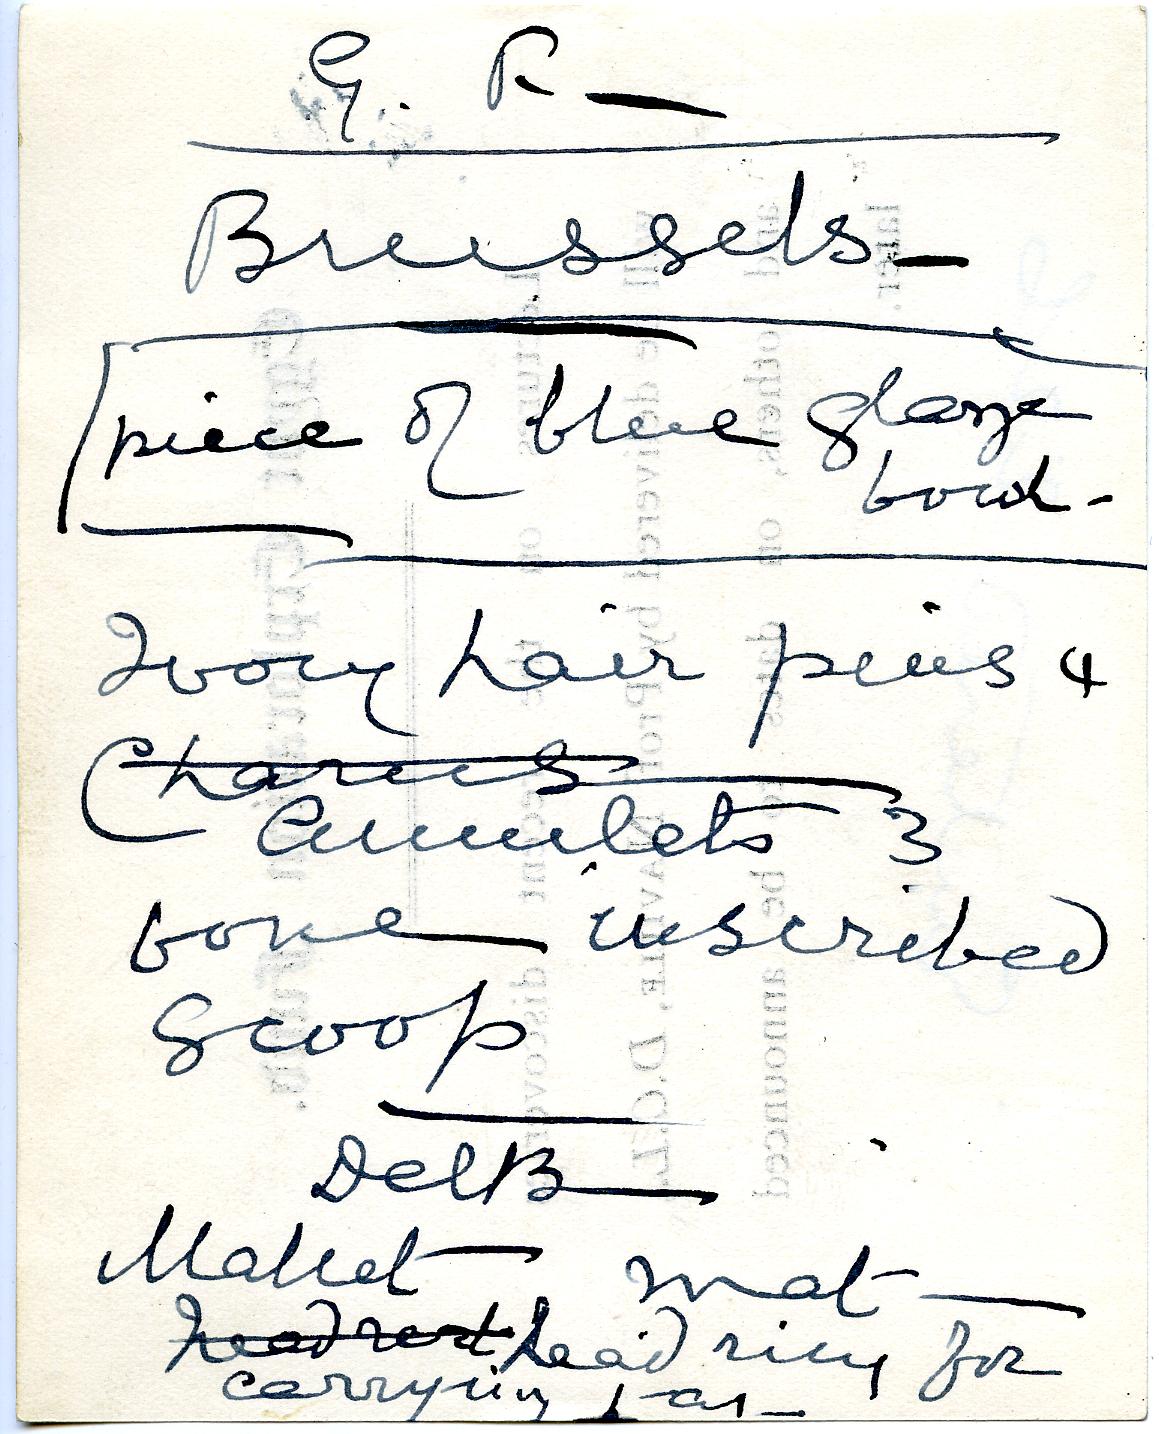 G. R —
Brussels —
piece of blue glaze
bowl -
Ivory hair pins 4
Charms
Amulets 3
bone inscribed
scoop
Del B —
Mallet — mat —
headrest head ring for
carrying jar —